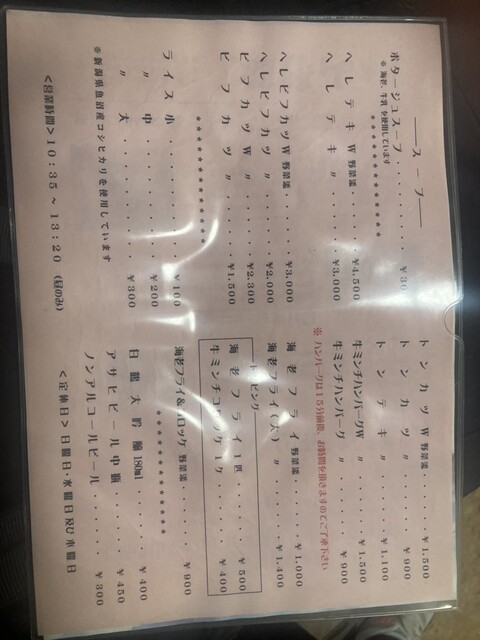 ――スープ――
ポタージュスープ・・・・・・・¥30
※海老、牛乳を使用しています
＊＊＊＊＊＊＊＊＊＊＊＊＊＊＊
ヘレテキW 野菜添・・・・¥4,500
ヘレテキ 〃・・・・・¥3,000
ヘレビフカツW 野菜添・・・¥3,000
ヘレビフカツ 〃・・・・¥2,000
ビフカツW 〃・・・・¥2,300
ビフカツ 〃・・・・・¥1,500
＊＊＊＊＊＊＊＊＊＊＊＊＊＊＊
ライス小・・・・・・・・¥100
〃 中・・・・・・・・¥200
〃 大・・・・・・・・¥300
※新潟県魚沼産コシヒカリを使用しています
＜営業時間＞10：35～13：20（昼のみ）
トンカツW 野菜添・・・・¥1,500
トンカツ 〃・・・・・¥900
トンテキ 〃・・・・・¥1,100
牛ミンチハンバーグW 〃・・・・¥1,500
牛ミンチハンバーグ 〃・・・・¥900
※ハンバーグは15分前後、お時間を頂きますのでご了承下さい
海老フライ 野菜添・・・・¥1,000
海老フライ(大) 〃・・・・¥1,400
―トッピング―
海老フライ1匹・・・・・¥500
牛ミンチコロッケ1ケ・・・・¥400
海老フライ&コロッケ 野菜添・・・・¥900
＊＊＊＊＊＊＊＊＊＊＊＊＊＊＊
日龍大吟醸180ml・・・・・¥400
アサヒビール中瓶・・・・・¥450
ノンアルコールビール・・・・・¥300
＜定休日＞日曜日・水曜日及び木曜日